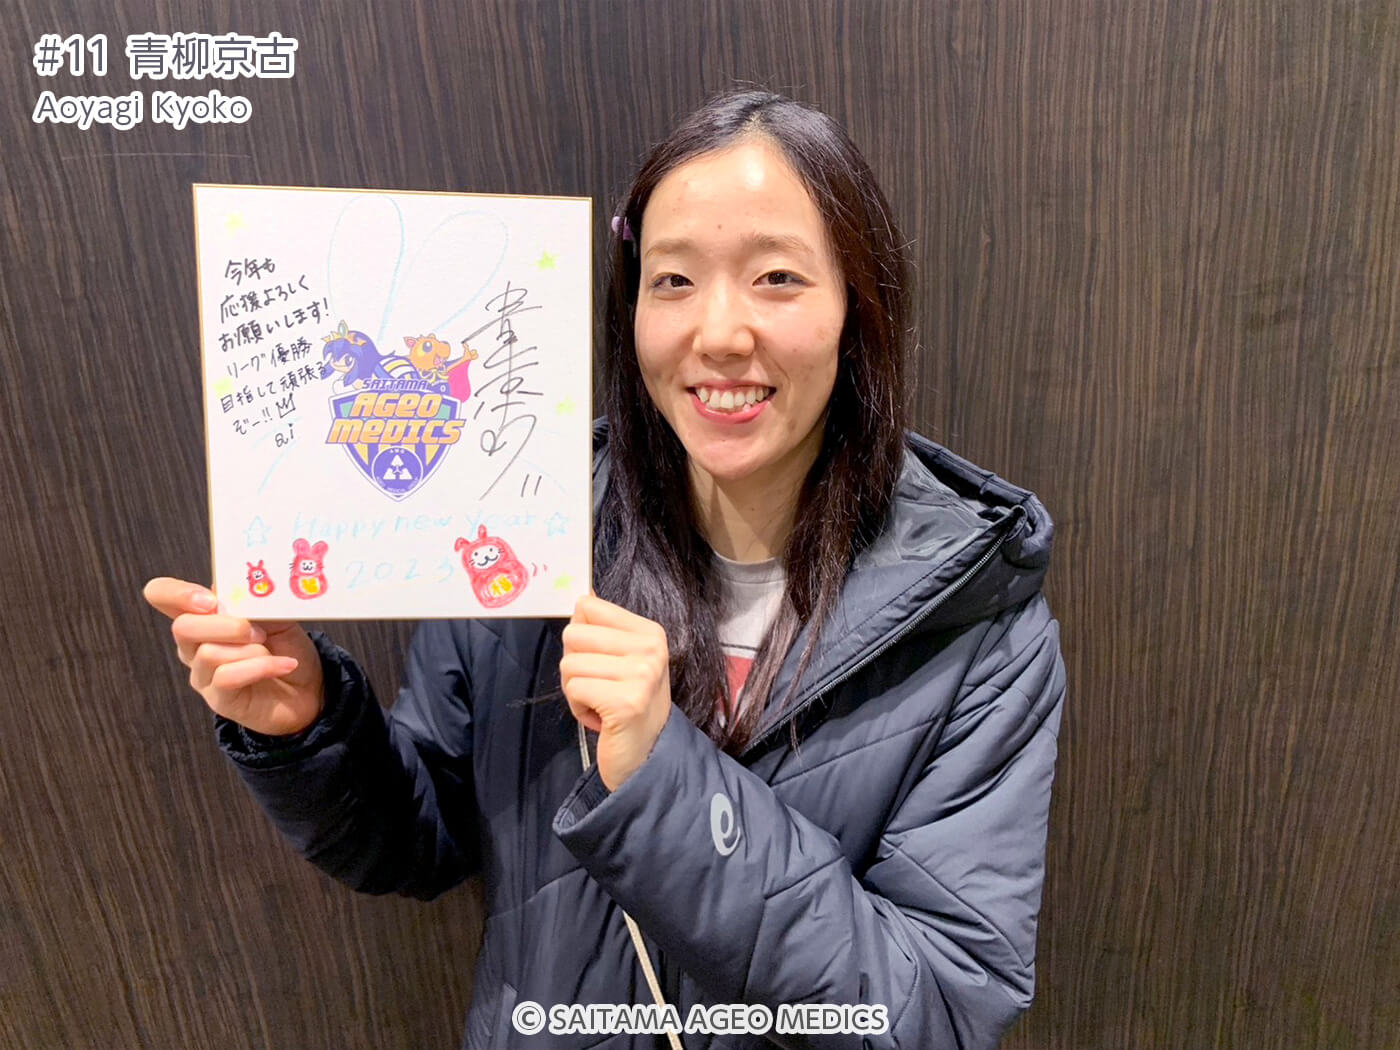 #11 青柳京古
Aoyagi Kyoko
今年も
応援よろしく
お願いします!
リーグ優勝
目指して頑張る
ぞー!!
SAITAMA
AGEO
MEDICS
11
Happy new year
2023
© SAITAMA AGEO MEDICS